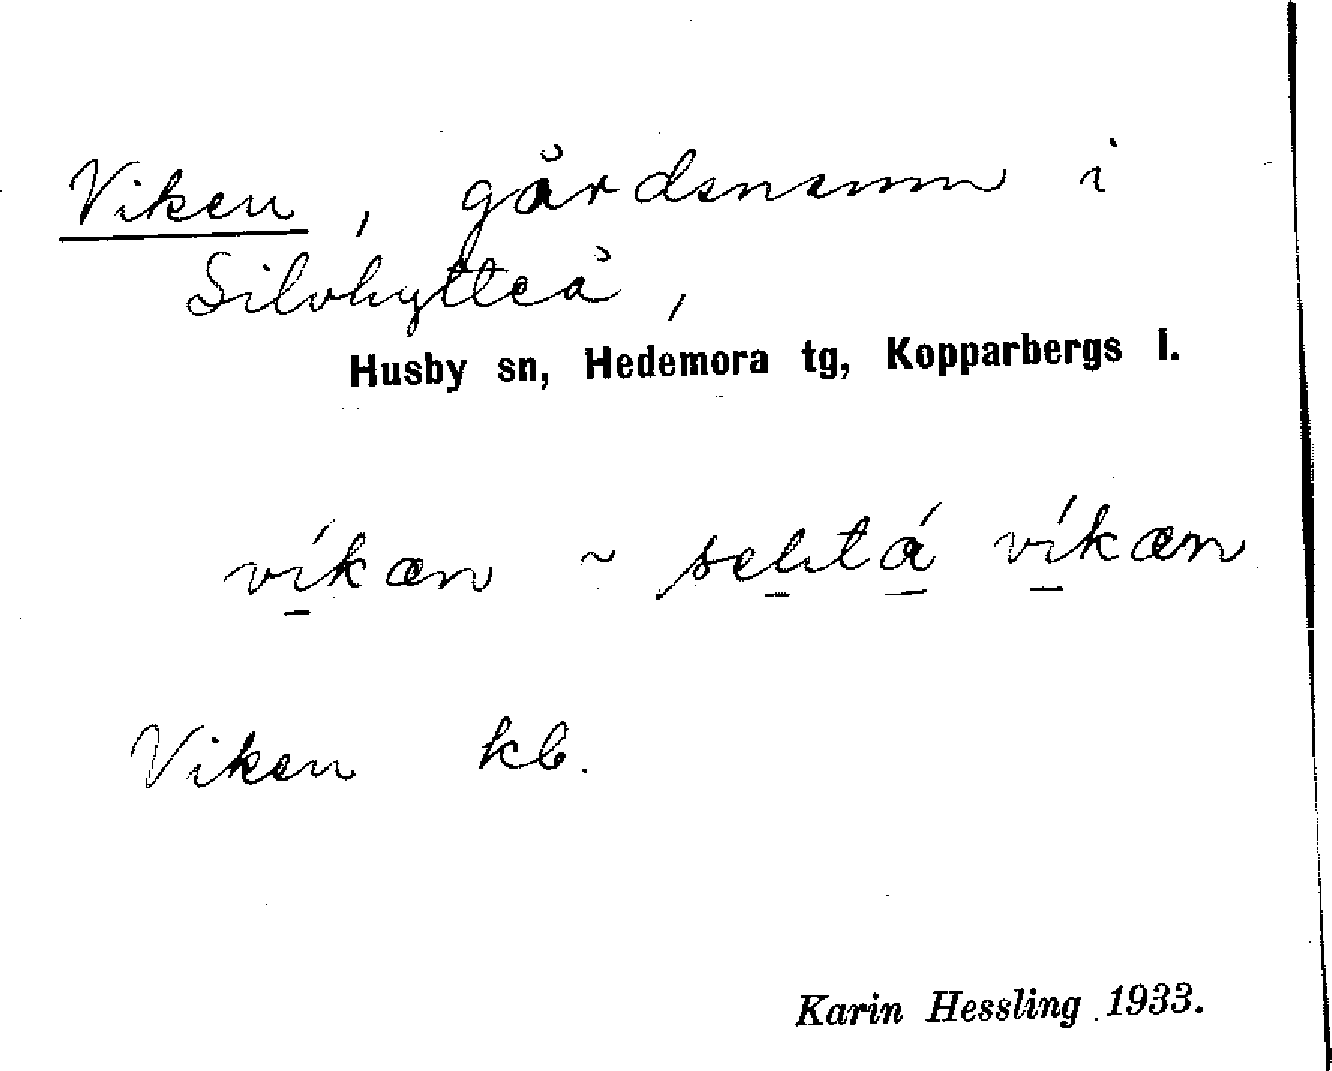 Viken, gårdsnamn i
Silvhytteå,
Husby sn, Hedemora tg, Kopparbergs l.
víkæn ~ sehtá víkæn
Viken kb.
Karin Hessling 1933.